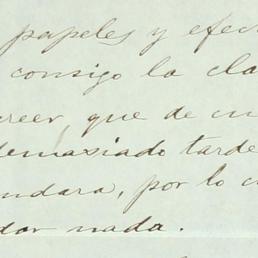 papeles y efec
consigo la cla
creer, que de cu
demaxiado tarde
ndara, por lo c
dar nada.